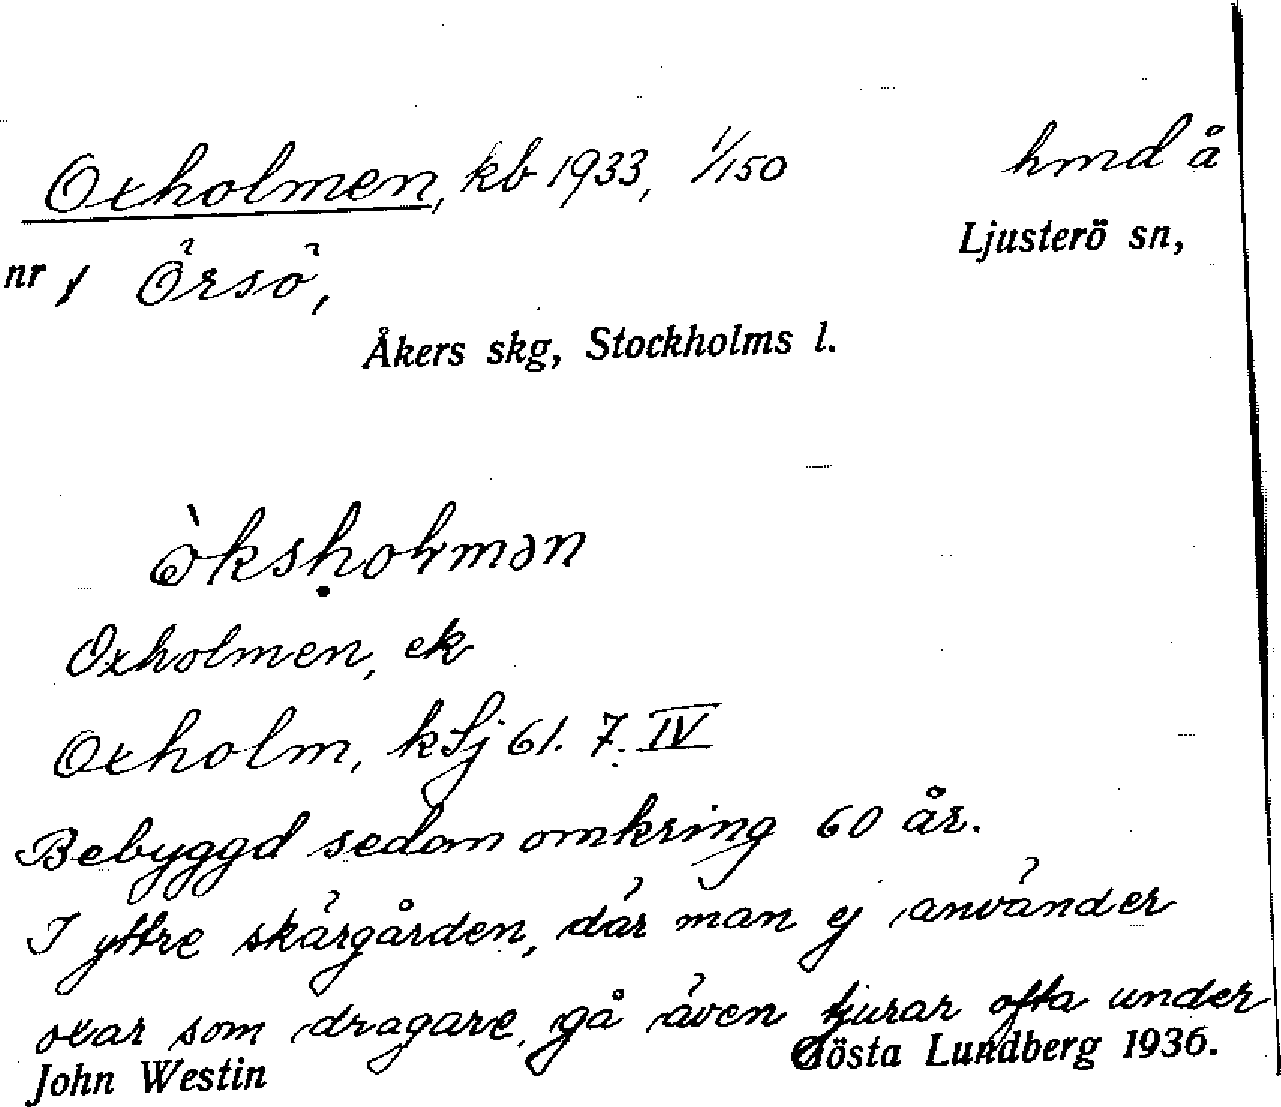 Oxholmen, kb 1933, 1/150 hmd å
Ljusterö sn,
nr 1 Örsö,
Åkers skg, Stockholms l.
òksḥolmən
Oxholmen, ek
Oxholm, kLj 61. 7. IV
Bebyggd sedan omkring 60 år.
I yttre skärgården, där man ej använder
oxar som dragare, gå även tjurar ofta under
John Westin Gösta Lundberg 1936.